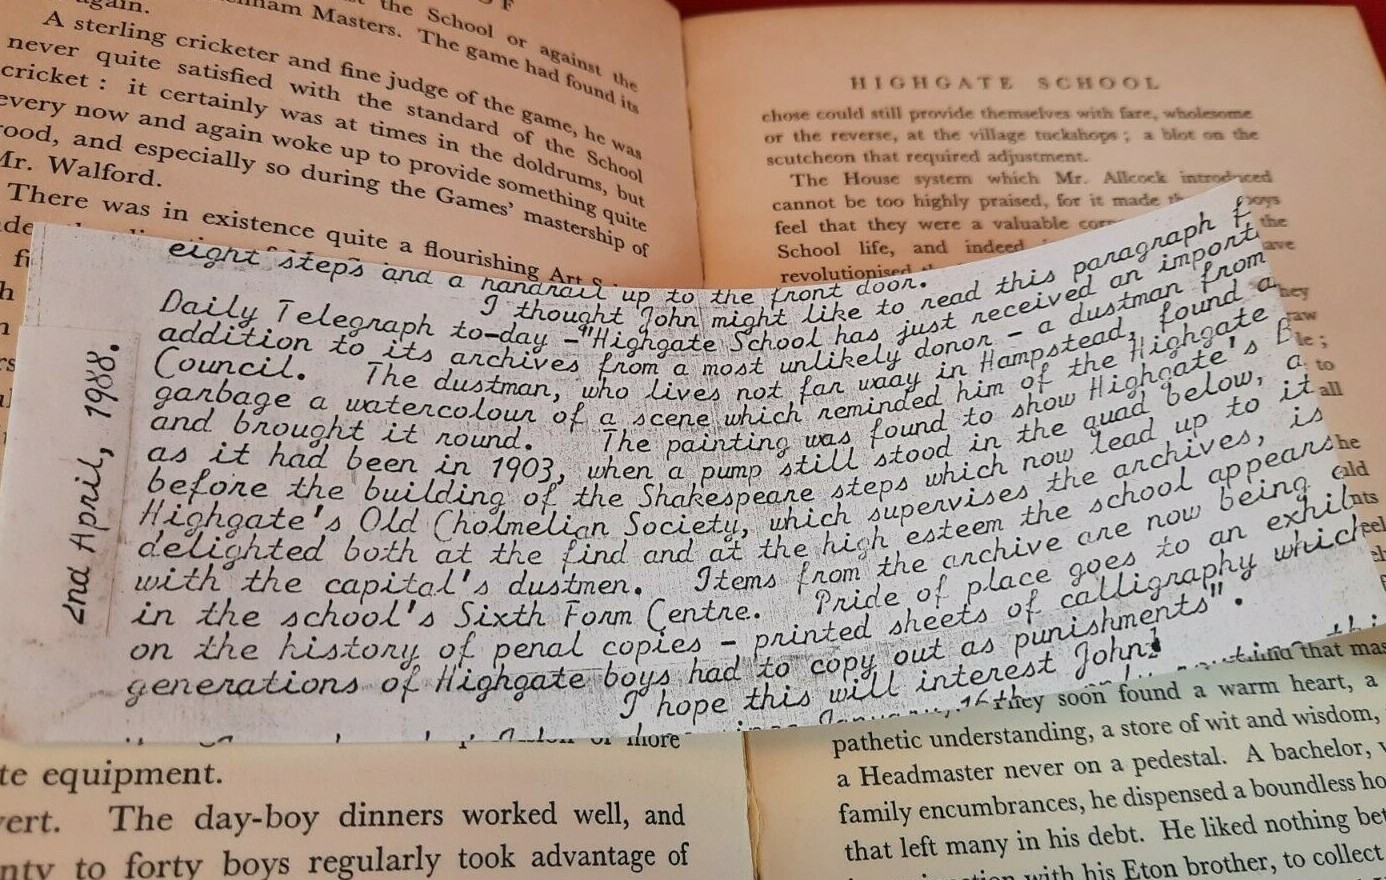 again.
the School or against the
Masters. The game had found its
A sterling cricketer and fine judge of the game, he was
never quite satisfied with the standard of the School
cricket : it certainly was at times in the doldrums, but
every now and again woke up to provide something quite
and especially so during the Games' mastership of
Mr. Walford.
There was in existence quite a flourishing Art
HIGHGATE SCHOOL
chose could still provide themselves with fare, wholesome
or the reverse, at the village tuckshops ; a blot on the
scutcheon that required adjustment.
The House system which Mr. Allcock introduced
cannot be too highly praised, for it made boys
feel that they were a valuable the
School life, and indeed
revolutionised
2nd April, 1988.
eight steps and a handrail up to the front door.
I thought John might like to read this paragraph
Daily Telegraph to-day – "Highgate School has just received an import
addition to its archives from a most unlikely donor – a dustman from
Council. The dustman, who lives not far waay in Hampstead, found a
garbage a watercolour of a scene which reminded him of the Highgate
and brought it round. The painting was found to show Highgate's B
as it had been in 1903, when a pump still stood in the quad below, a
before the building of the Shakespeare steps which now lead up to it
Highgate's Old Cholmelian Society, which supervises the archives, is
delighted both at the find and at the high esteem the school appears
with the capital's dustmen. Items from the archive are now being
in the school's Sixth Form Centre. Pride of place goes to an exhib
on the history of penal copies – printed sheets of calligraphy which
generations of Highgate boys had to copy out as punishments".
I hope this will interest John!
or more
te equipment.
vert. The day-boy dinners worked well, and
nty to forty boys regularly took advantage of
that mas
they soon found a warm heart, a
pathetic understanding, a store of wit and wisdom,
a Headmaster never on a pedestal. A bachelor,
family encumbrances, he dispensed a boundless ho
that left many in his debt. He liked nothing bet
with his Eton brother, to collect